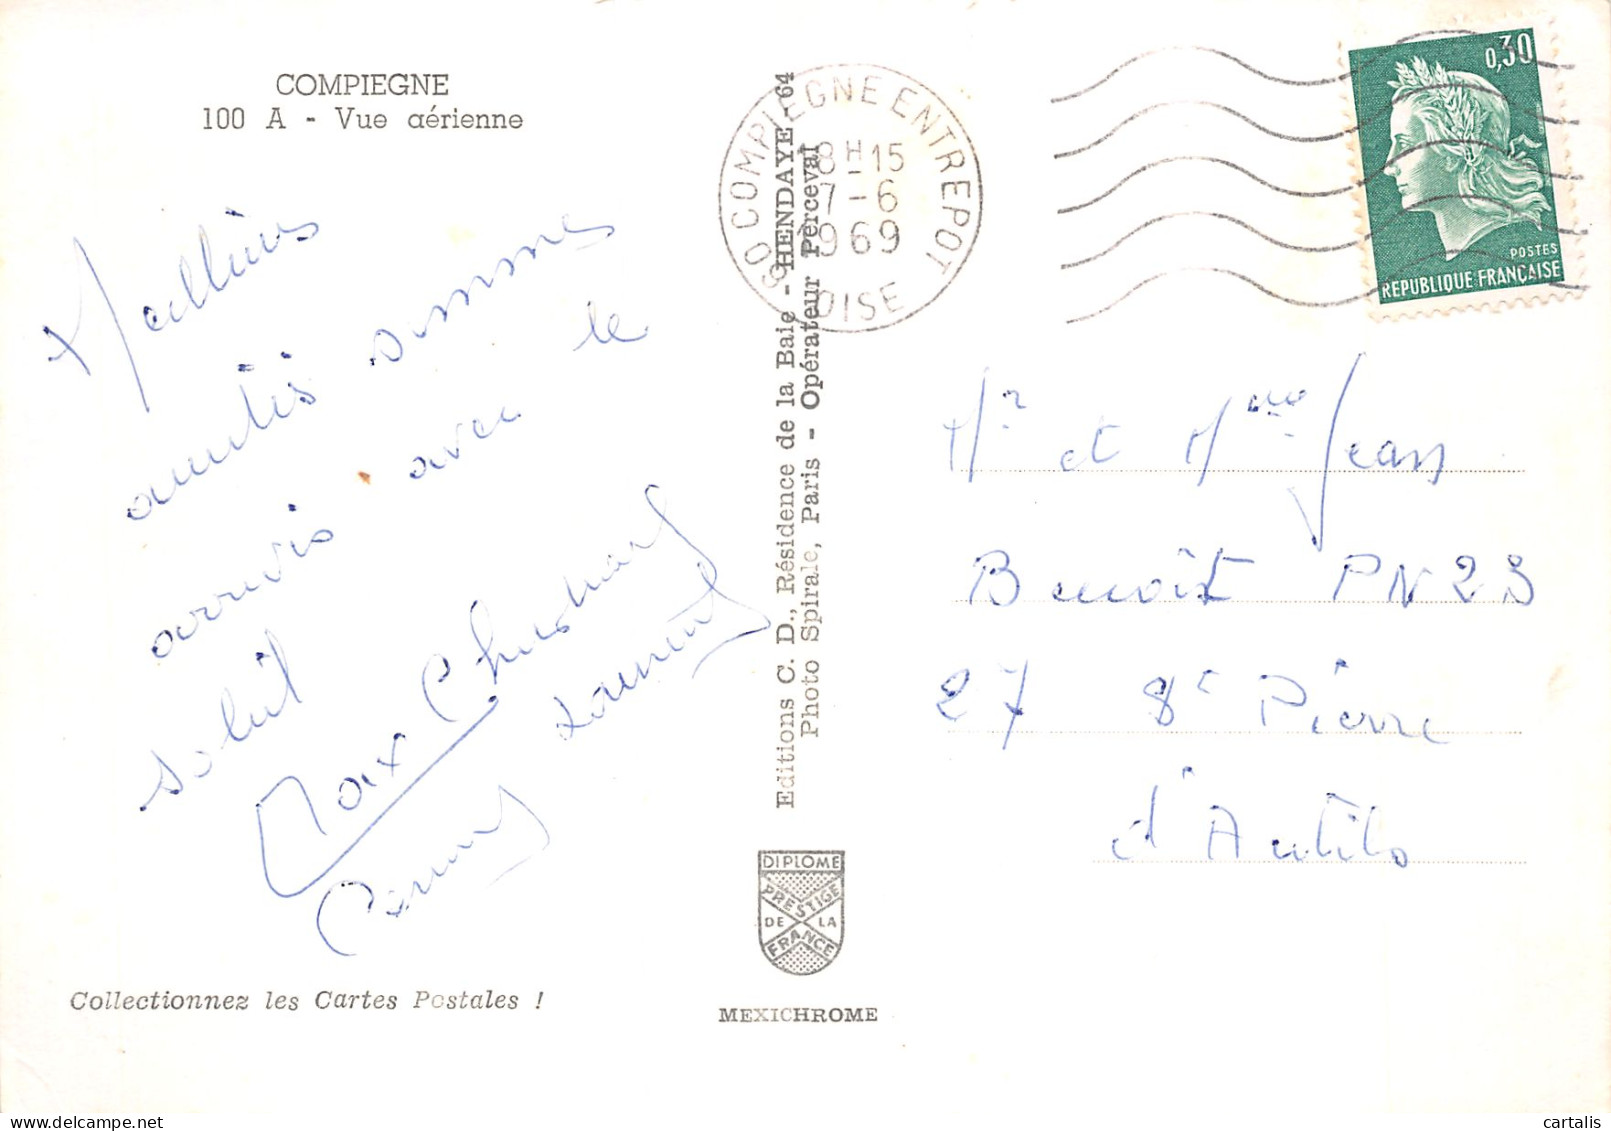 COMPIEGNE
100 A - Vue aérienne
Meilleures
amitiés sommes
arrivés avec le
soleil
Max Christiane
Laurent
Collectionnez les Cartes Postales !
Editions C. D., Résidence de la Baie - HENDAYE - 64
Photo Spirale, Paris - Opérateur Perceval
DIPLOME
PRESTIGE
DE LA
FRANCE
MEXICHROME
60 COMPIEGNE ENTREPOT
18H15
7-6
1969
OISE
0,30
POSTES
REPUBLIQUE FRANÇAISE
Mr et Mme Jean
Benoît PN23
27 St Pierre
d'Autils
cartalis
www.delcampe.net